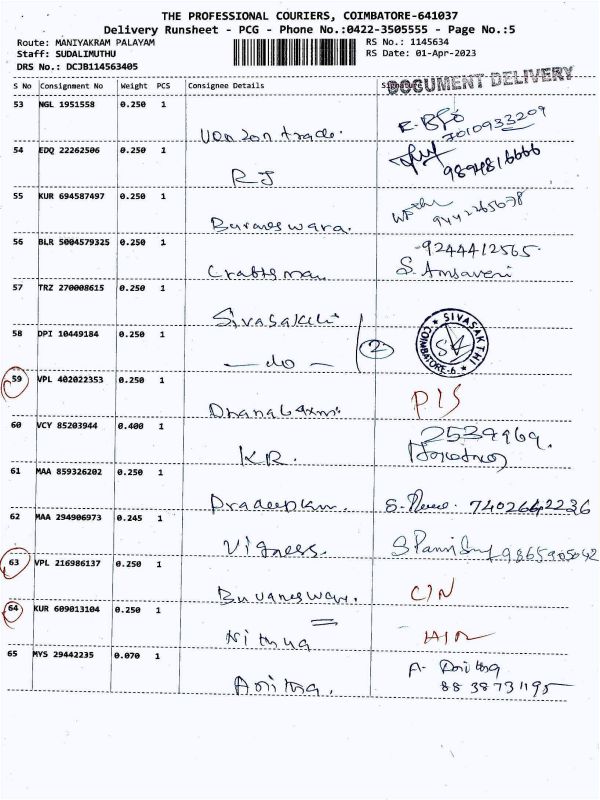 THE PROFESSIONAL COURIERS, COIMBATORE-641037
Delivery Runsheet - PCG - Phone No.:0422-3505555 - Page No.:5
Route: MANIYAKRAM PALAYAM RS No.: 1145634
Staff: SUDALIMUTHU RS Date: 01-Apr-2023
DRS No.: DCJB114563405
DOCUMENT DELIVERY
S No Consignment No Weight PCS Consignee Details
53 NGL 1951558 0.250 1
7010933209
54 EDQ 22262506 0.250 1
RJ 9894816666
55 KUR 694587497 0.250 1
Buvaneswara. 9442265678
56 BLR 5004579325 0.250 1
-9244412565.
Craftsman S. Amsaveni
57 TRZ 270008615 0.250 1
Sivasakthi
SIVASAKTHI
COIMBATORE-6.
58 DPI 10449184 0.250 1
- do - 2
59 VPL 402022353 0.250 1
Dhanalaxmi. P/S
60 VCY 85203944 0.400 1
2539969.
KR.
61 MAA 859326202 0.250 1
Pradeepkm. 7402642236
62 MAA 294906973 0.245 1
Vigness. 9865905042
63 VPL 216986137 0.250 1
Buvaneswari. C/N
64 KUR 609013104 0.250 1
Nithya
65 MYS 29442235 0.070 1
Asritha. 8838731195